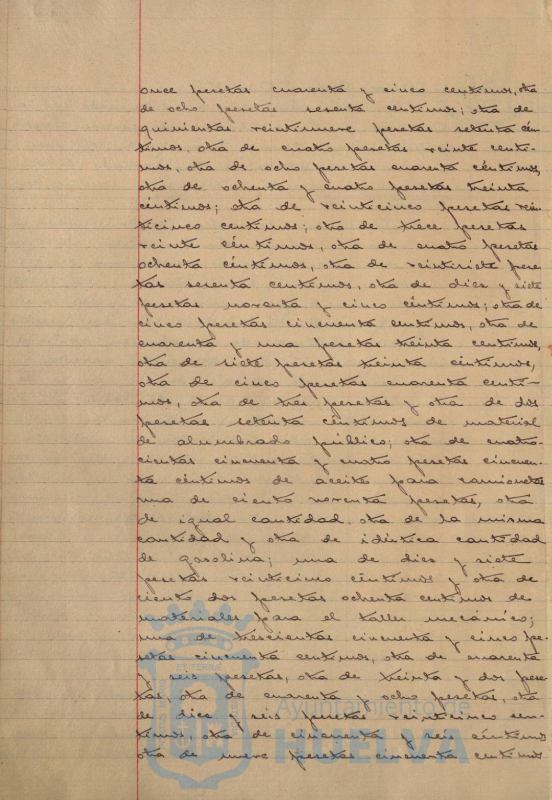 once pesetas cuarenta y cinco centimos, otra
de ocho pesetas sesenta centimos; otra de
quinientas veintinueve pesetas setenta cén-
timos. otra de cuatro pesetas veinte centi-
mos, otra de ocho pesetas cuarenta céntimos,
otra de ochenta y cuatro pesetas treinta
céntimos; otra de veinticinco pesetas vein-
ticinco centimos; otra de trece pesetas
veinte céntimos, otra de cuatro pesetas
ochenta céntimos, otra de veintisiete pese-
tas sesenta centimos, otra de dies y siete
pesetas noventa y cinco céntimos; otra de
cinco pesetas cincuenta centimos, otra de
cuarenta y una pesetas treinta centimos,
otra de siete pesetas treinta centimos,
otra de cinco pesetas cuarenta centi-
mos, otra de tres pesetas y otra de dos
pesetas setenta céntimos de material
de alumbrado público; otra de cuatro-
cientas cincuenta y cuatro pesetas cincuen-
ta céntimos de aceite para camionetas
una de ciento noventa pesetas, otra
de igual cantidad. otra de la misma
cantidad y otra de idéntica cantidad
de gasolina; una de dies y siete
pesetas veinticinco céntimos y otra de
ciento dos pesetas ochenta centimos de
materiales para el taller mecánico;
una de trescientas cincuenta y cinco pe-
setas cincuenta centimos, otra de cuarenta
y seis pesetas, otra de treinta y dos pese-
tas, otra de cuarenta y ocho pesetas, otra
de dies y seis pesetas veinticinco cen-
timos, otra de cincuenta y seis céntimos
otra de nueve pesetas cincuenta centimos
Ayuntamiento de
HUELVA